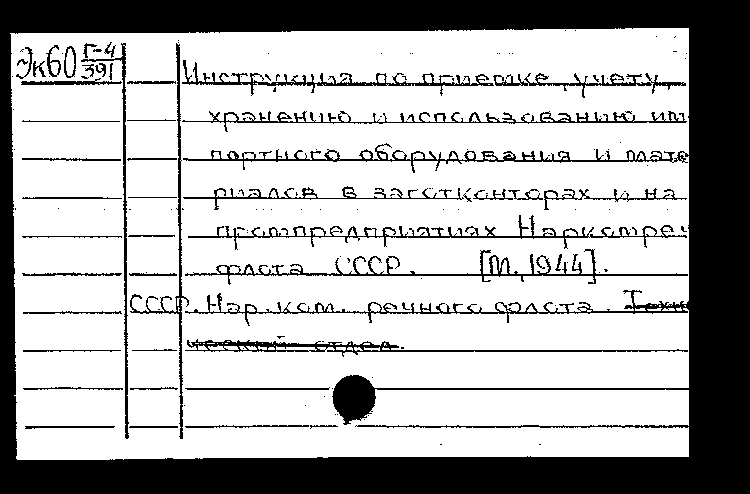 Эк60 Г-4/391
Инструкция по приемке, учету,
хранению и использованию им-
портного оборудования и мате-
риалов в заготконторах и на
промпредприятиях Наркомреч-
флота СССР. [М., 1944].
СССР. Нар. ком. речного флота. Техни-
ческий отдел.